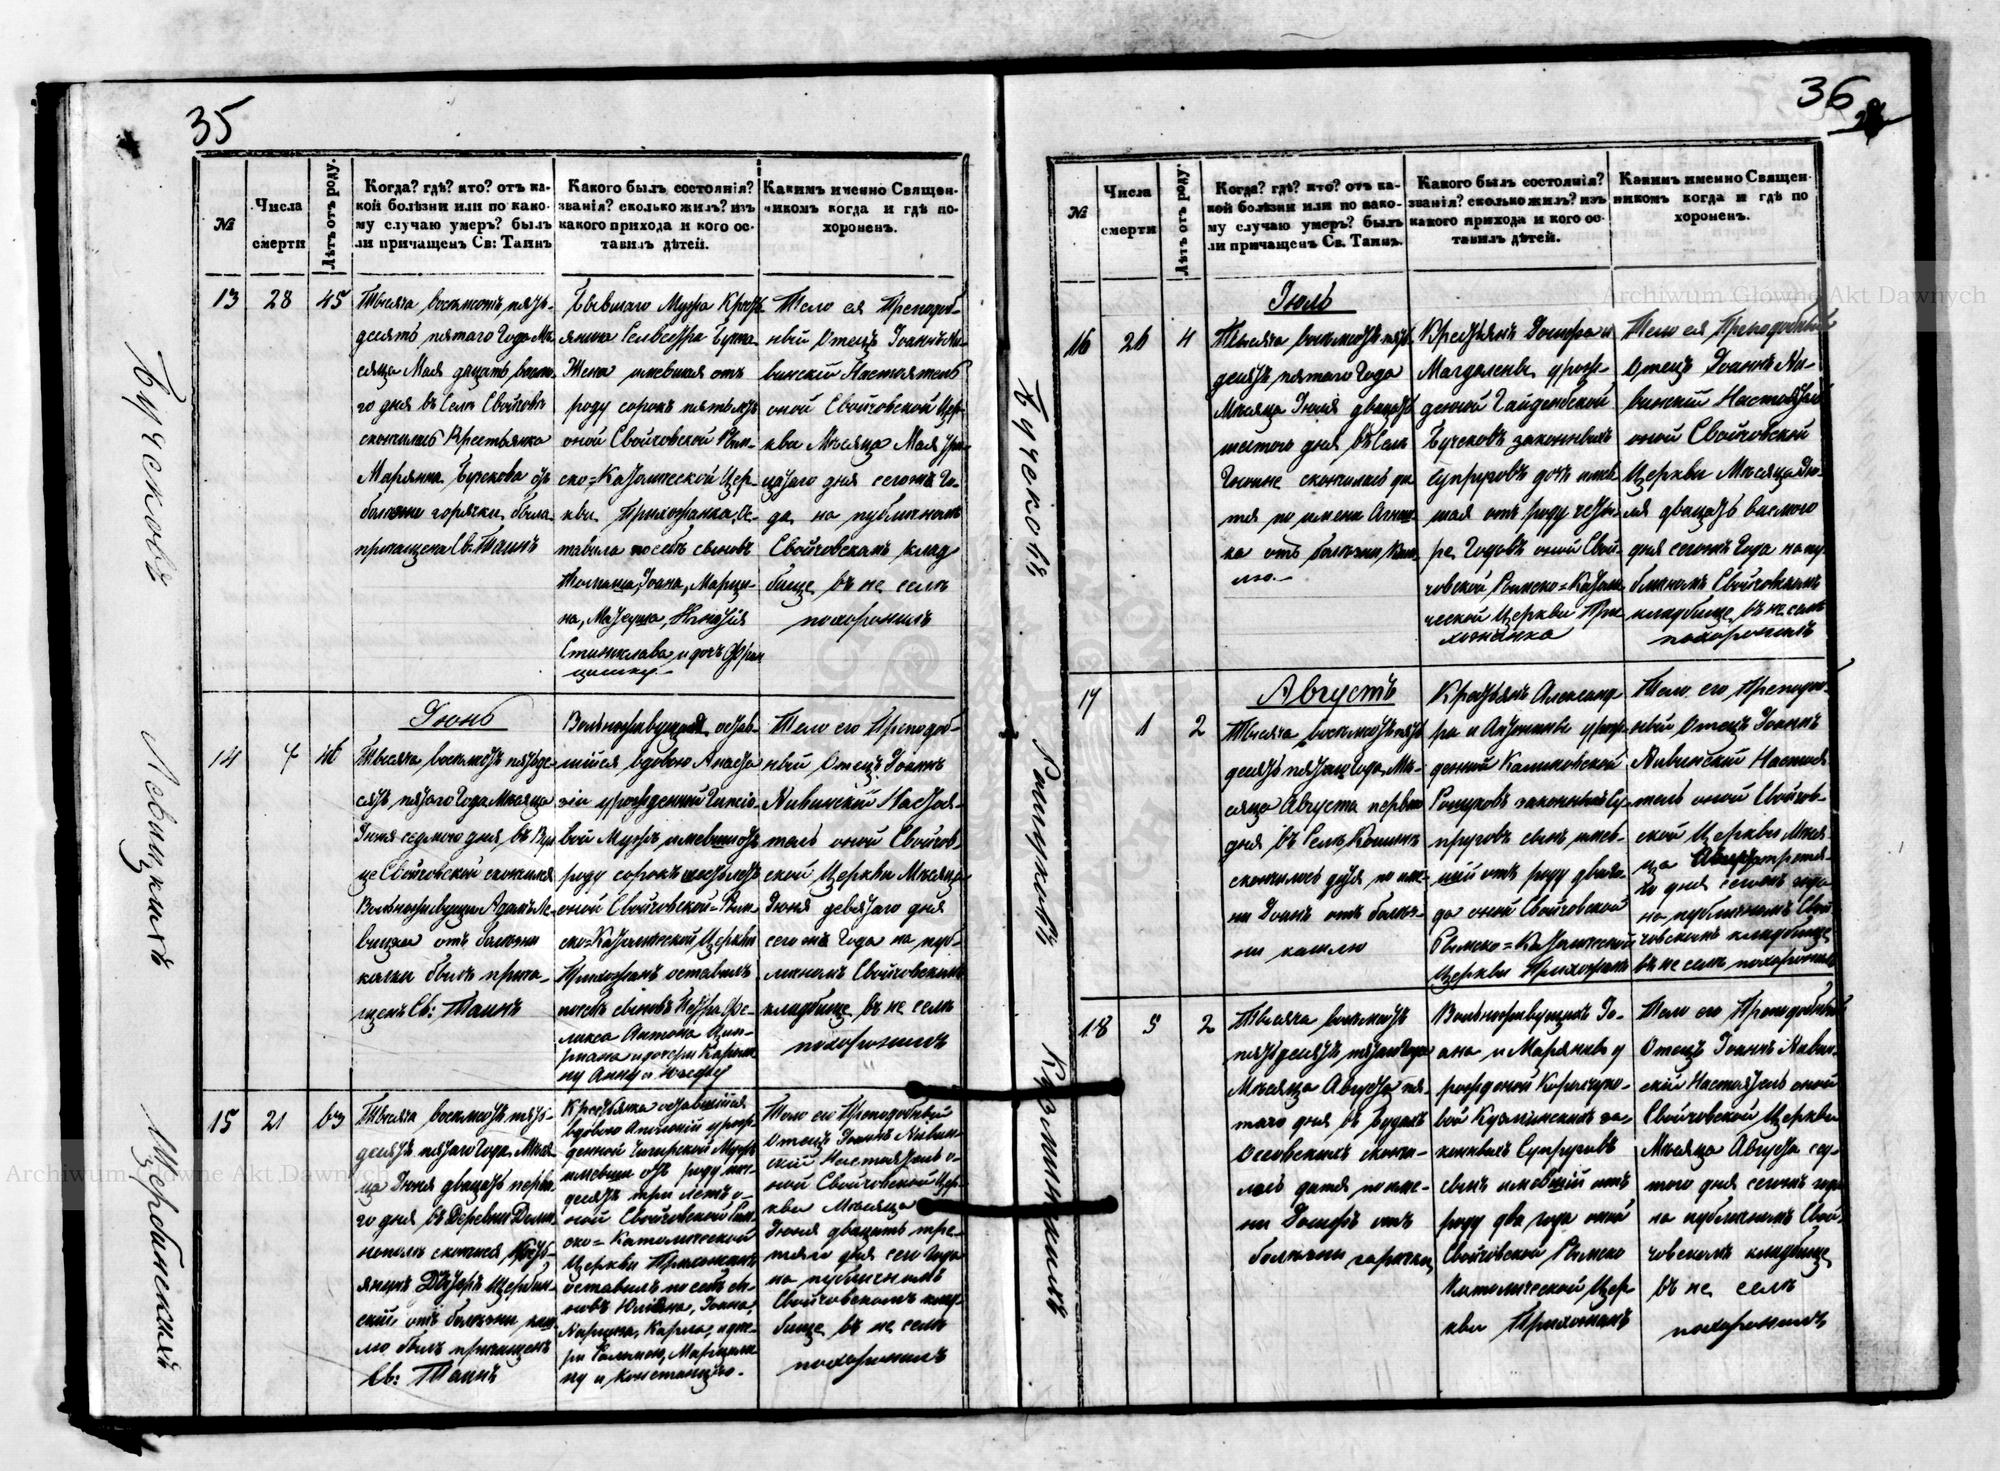 35
№
Числа
смерти
Лѣтъ отъ роду.
Когда? гдѣ? кто? отъ ка-
кой болѣзни или по како-
му случаю умеръ? былъ
ли причащенъ Св: Таинъ
Какого былъ состоянія?
званія? сколько жилъ? изъ
какого прихода и кого ос-
тавилъ дѣтей.
Какимъ именно Священ-
никомъ когда и гдѣ по-
хороненъ.
Бучекова
13
28
45
Тысяча восемьсотъ пять-
десятъ пятаго Года Мѣ-
сяца Мая
го дня въ Селѣ
скончалась Крестьянка
Марянна Бучекова отъ
болѣзни горячки была
причащена Св. Таинъ
Бывшаго Мужа Кресть
янина Сельвестра
Жена имевшая отъ
роду сорокъ пять лѣтъ
оной Свойчовской Рим-
ско=Католической Цер-
кви Прихожанка, Ос-
тавила по себѣ сыновъ
Томаша, Іоана, Марци-
на, Матеуша, Игнатія
Станислава и дочь Фран
цишку
Тело ея Преподоб-
ный Отецъ Іоаннъ Ли-
винскій Настоятель
оной Свойчовской Цер-
кви Мѣсяца Мая трид-
цатаго дня сегожъ Го-
да на публичномъ
Свойчовскомъ клад
бище въ не селѣ
похоронилъ
Левицкихъ
Іюнь
14
7
46
Тысяча восемьсотъ пятьде-
сятъ пятаго Года Мѣсяца
Іюня седмого дня въ
Свойчовской скончался
Вольноживущій Адамъ Ле-
вицки отъ болѣзни
былъ прича-
щенъ Св: Таинъ
Вольноживущая остав-
шійся вдовою
урожденной
вой Мужъ имевшій отъ
роду сорокъ шесть лѣтъ
оной Свойчовской Рим-
ско=Католической Церкви
Прихожанъ оставилъ
по себѣ сыновъ Петра Фе-
ликса Антона
и дочери
ну Анну и Юзефу
Тело его Преподоб-
ный Отецъ Іоаннъ
Ливинскій Настоя-
тель оной Свойчов-
ской Церкви Мѣсяца
Іюня девятаго дня
сегожъ Года на пуб-
личномъ Свойчовскомъ
кладбище въ не селѣ
похоронилъ
Щербинскихъ
15
21
63
Тысяча восемьсотъ пять-
десятъ пятаго Года Мѣся-
ца Іюня двадцать перва-
го дня въ Деревни
скончался Кресть-
янинъ Щербин-
скій отъ болѣзни каш-
лю былъ причащенъ
Св: Таинъ
Крестьянка оставшійся
вдовою урож-
денной Мужъ
имевши отъ роду шес-
десятъ три летъ о-
ной Свойчовской Рим-
ско=Католической
Церкви Прихожанъ
оставилъ по себѣ сы-
новъ Юліяна, Іоана,
Марцина, Карла, и доче-
ри Марцели
ну и Констанцію.
Тело его Преподобный
Отецъ Іоаннъ Ливин-
скій Настоятель о-
ной Свойчовской Цер-
кви Мѣсяца
Іюня двадцать тре-
тяго дня сего Года
на публичномъ
Свойчовскомъ клад-
бище въ не селѣ
похоронилъ
36
№
Числа
смерти
Лѣтъ отъ роду.
Когда? гдѣ? кто? отъ ка-
кой болѣзни или по како-
му случаю умеръ? былъ
ли причащенъ Св. Таинъ.
Какого былъ состоянія?
званія? сколько жилъ? изъ
какого прихода и кого ос-
тавилъ дѣтей.
Какимъ именно Священ-
никомъ когда и гдѣ по
хороненъ.
Archiwum Główne Akt Dawnych
Бучековъ
Іюль
16
26
4
Тысяча восемьсотъ пять
десятъ пятаго Года
Мѣсяца Іюля двадцать
шестого дня въ Селѣ
скончалась ди
тя по имени Агнеш
ка отъ болѣзни каш-
лю
Крестьянъ Іосифа и
Магдалены урож-
денной
Бучековъ законныхъ
Супруговъ дочь имев-
шая отъ роду четы-
ре Годовъ оной Свой-
човской Римско=Католи
ческой Церкви При
хожанка
Тело ея Преподобный
Отецъ Іоаннъ Ли-
винскій Настоятель
оной Свойчовской
Церкви Мѣсяца Ію-
ля двадцать васмого
дня сегожъ Года на пу-
бличномъ Свойчовскомъ
кладбище въ не селѣ
похоронилъ
Ращуковъ
Августъ
17
1
2
Тысяча восемьсотъ пять
десятъ пятаго Года Мѣ-
сяца Августа перваго
дня въ Селѣ
скончалось дитя по име-
ни Іоанъ отъ болѣз-
ни кашлю
Крестьянъ Александ-
ра и Антонины урож-
денной
законныхъ Су-
пруговъ сынъ имев-
шій отъ роду два го-
да оной Свойчовской
Римско=Католической
Церкви Прихожанъ
Тело его Преподоб-
ный Отецъ Іоаннъ
Ливинскій Настоя
тель оной Свойчов-
ской Церкви Мѣся
ца Августа третя-
го дня сегожъ года
на публичномъ Свой-
човскомъ кладбище
въ не селѣ похоронилъ
Кузминскихъ
18
5
2
Тысяча восемьсотъ
пятьдесятъ пятаго Года
Мѣсяца Августа пя-
таго дня въ Будахъ
Оссовскихъ сконча-
лось дитя по име-
ни Іосифъ отъ
болѣзни горячки
Вольноживущихъ Іо-
ана и Марянны у
рожденой
вой Кузминскихъ за-
конныхъ Супруговъ
сынъ имевшій отъ
роду два года оной
Свойчовской Римско
Католической Цер-
кви Прихожанъ
Тело его Преподобный
Отецъ Іоаннъ Ливин-
скій Настоятель оной
Свойчовской Церкви
Мѣсяца Августа сед-
мого дня сегожъ года
на публичномъ Свой-
човскомъ кладбище
въ не селѣ
похоронилъ
Archiwum Główne Akt Dawnych